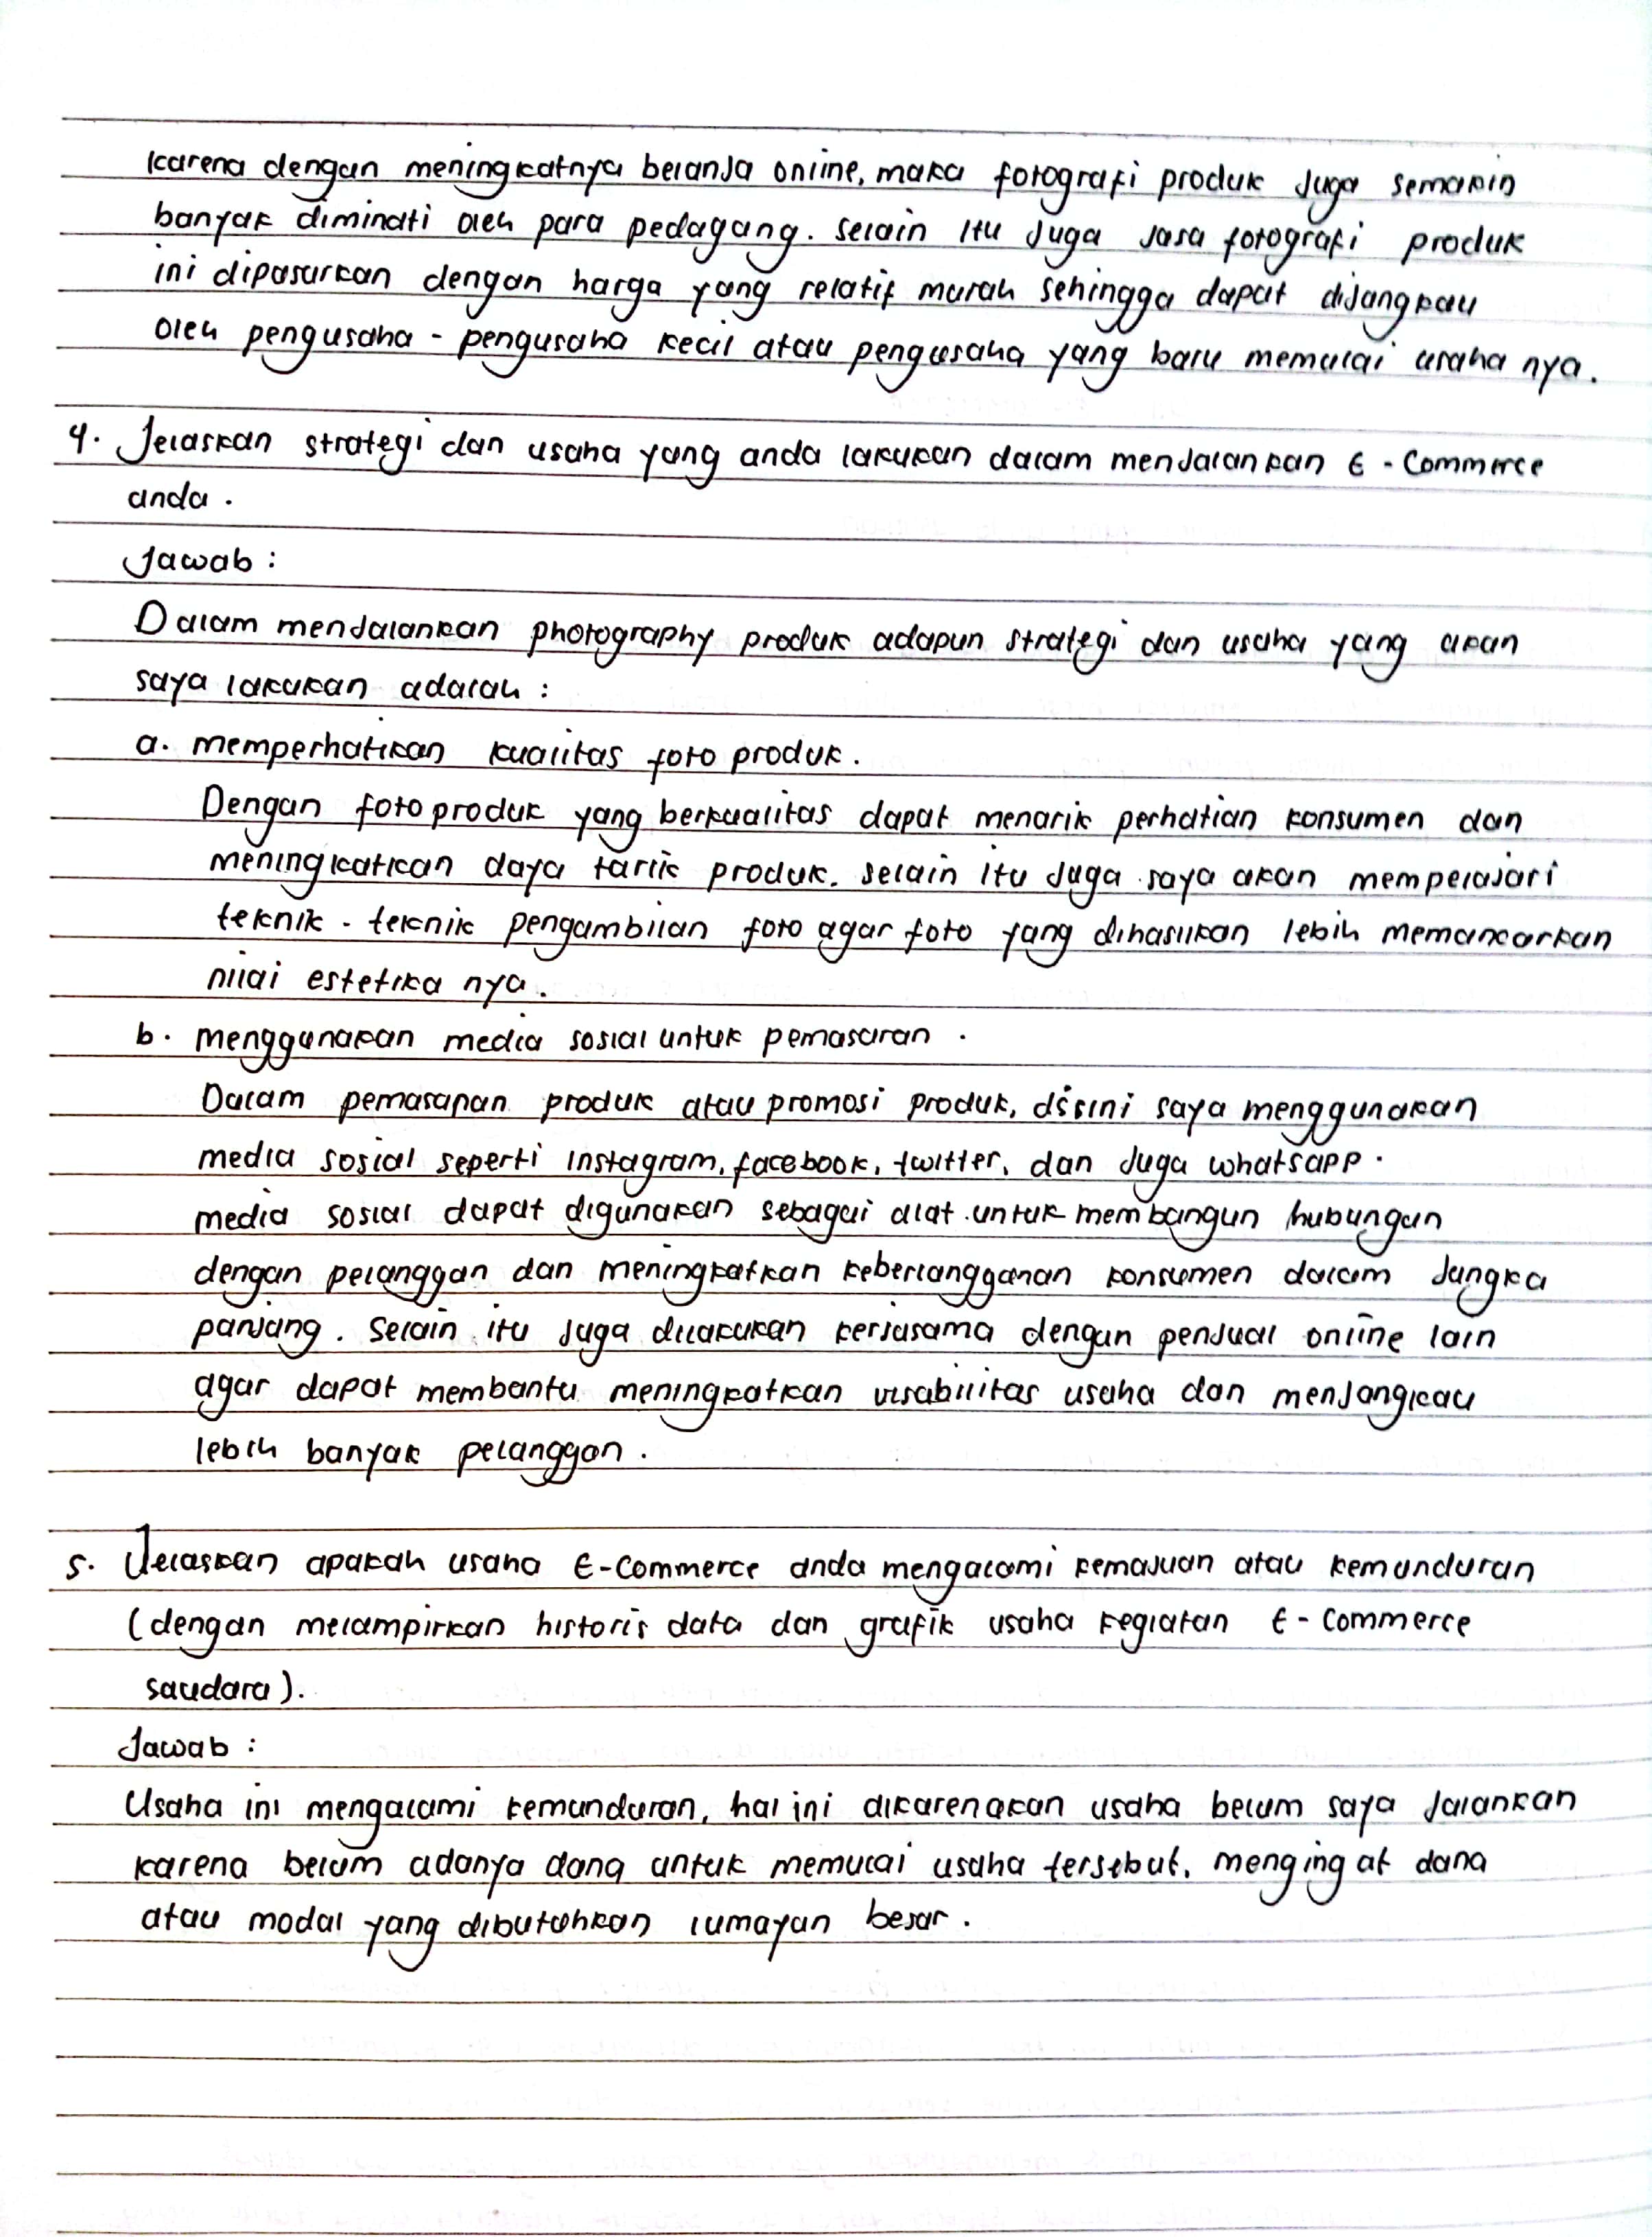 karena dengan meningkatnya belanja online, maka fotografi produk juga semakin
banyak diminati oleh para pedagang. selain itu juga jasa fotografi produk
ini dipasarkan dengan harga yang relatif murah sehingga dapat dijangkau
oleh pengusaha - pengusaha kecil atau pengusaha yang baru memulai usaha nya.
4. Jelaskan strategi dan usaha yang anda lakukan dalam menjalankan E - Commerce
anda.
Jawab :
Dalam menjalankan photography produk adapun strategi dan usaha yang akan
saya lakukan adalah :
a. memperhatikan kualitas foto produk.
Dengan foto produk yang berkualitas dapat menarik perhatian konsumen dan
meningkatkan daya tarik produk. selain itu juga saya akan mempelajari
teknik - teknik pengambilan foto agar foto yang dihasilkan lebih memancarkan
nilai estetika nya.
b. menggunakan media sosial untuk pemasaran .
Dalam pemasaran produk atau promosi produk, disini saya menggunakan
media sosial seperti instagram, facebook, twitter, dan juga whatsapp.
media sosial dapat digunakan sebagai alat untuk membangun hubungan
dengan pelanggan dan meningkatkan keberlangganan konsumen dalam jangka
panjang. Selain itu juga dilakukan kerjasama dengan penjual online lain
agar dapat membantu meningkatkan visabilitas usaha dan menjangkau
lebih banyak pelanggan.
5. Jelaskan apakah usaha E-Commerce anda mengalami kemajuan atau kemunduran
(dengan melampirkan historis data dan grafik usaha kegiatan E - Commerce
saudara).
Jawab :
Usaha ini mengalami kemunduran, hal ini dikarenakan usaha belum saya jalankan
karena belum adanya dana untuk memulai usaha tersebut, mengingat dana
atau modal yang dibutuhkan lumayan besar.